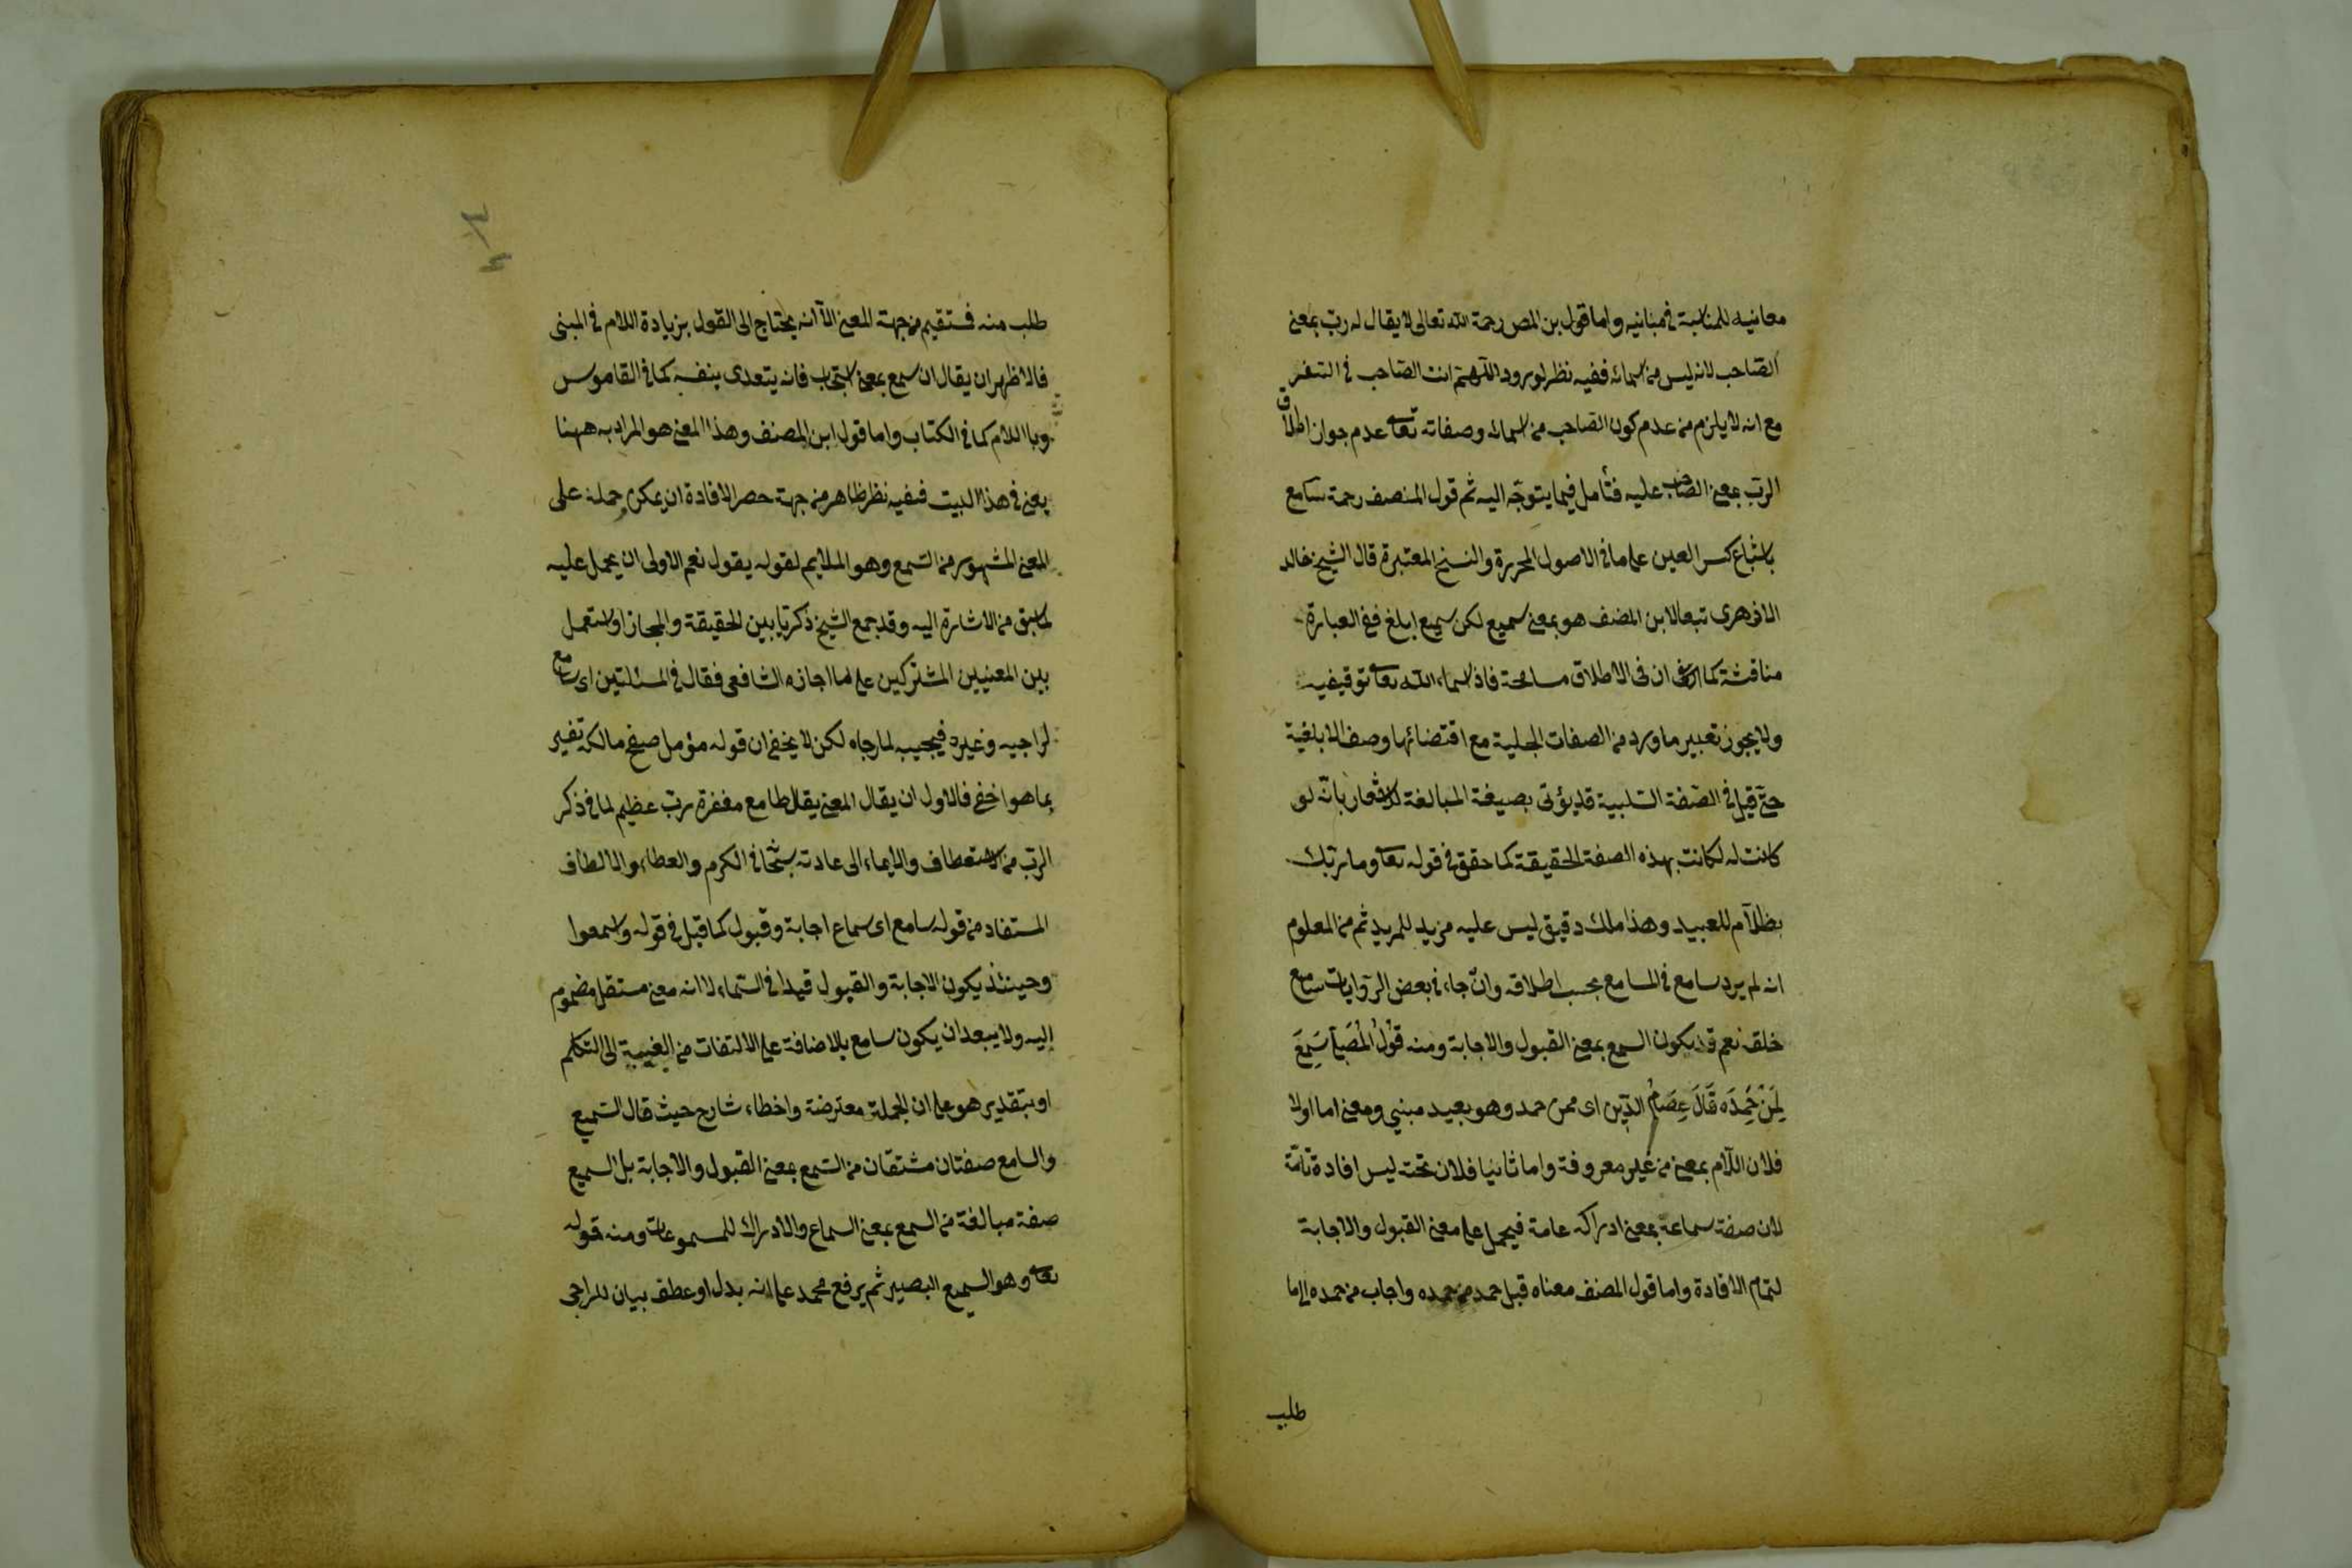 معانيه للمناسبة في مبانيه واما قول بن المص رحمة الله تعالى لا يقال له رب بمعنى
الصاحب لانه ليس من اسمائه ففيه نظر لورود اللهم انت الصاحب في السفر
مع انه لا يلزم من عدم كون الصاحب من اسمائه وصفاته تعا عدم جواز اطلاق
الرب بمعنى الصاحب عليه فتأمل فيما يتوجه اليه ثم قول المنصف رحمة سامع
باشباع كسر العين على ما في الاصول المحررة والنسخ المعتبرة قال الشيخ خالد
الازهرى تبعا لابن المصنف هو بمعنى سميع لكن سميع ابلغ ففي العبارة
مناقشة كما ان في الاطلاق مسامحة فاذ اسماء الله تعا توقيفيه
ولا يجوز تعبير ما ورد من الصفات الجلية مع اقتضائها وصف الابلغية
حتى قيل في الصفة السلبية قد يؤتى بصيغة المبالغة للاشعار بانه لو
كانت له لكانت بهذه الصفة الحقيقة كما حقق في قوله تعا وما ربك
بظلام للعبيد وهذا ملك دقيق ليس عليه مزيد للمريد ثم من المعلوم
انه لم يرد سامع في المسامع بحسب اطلاقه وان جاء في بعض الروايات سامع
خلقه نعم قد يكون السمع بمعنى القبول والاجابة ومنه قول المصلي سمع
لمن حمده قال عصام الدين اى ممن حمد وهو بعيد مبنى ومعنى اما اولا
فلان اللام بمعنى من غير معروفة واما ثانيا فلان تحته ليس افادة تامة
لان صفة سماعة بمعنى ادراكه عامة فيحمل على معنى القبول والاجابة
لتمام الافادة واما قول المصنف معناه قبل حمد من حمده واجاب من حمده الى ما
طلب
طلب منه فستقيم من جهة المعنى الا انه يحتاج الى القول بزيادة اللام في المبنى
فالاظهر ان يقال ان سمع بمعنى استجاب فانه يتعدى بنفسه كما في القاموس
وبا اللام كما في الكتاب واما قول ابن المصنف وهذا المعنى هو المراد به ههنا
يعنى في هذا البيت ففيه نظر ظاهر من جهة حصر الافادة ان يمكن حمله على
المعنى المشهور من السمع وهو الملايم لقوله يقول نعم الاولى ان يحمل عليه
لما سبق من الاشارة اليه وقد جمع الشيخ ذكريا بين الحقيقة والمجاز او استعمل
بين المعنيين المشتركين على ما اجازه الشافعى فقال في المسئلتين اى سامع
لراجيه وغيره فيجيب لما رجاه لكن لا يخفى ان قوله مؤمل صفح مالكه تفسير
بما هو اخفى فالاول ان يقال المعنى يقل طامع مغفرة رب عظيم لما في ذكر
الرب من الاستعطاف والايماء الى عادته سبحا في الكرم والعطاء والالطاف
المستفاد من قوله سامع اى سماع اجابة وقبول كما قيل في قوله واسمعوا
وحينئذ يكون الاجابة والقبول قيدا في السماء لا انه معنى مستقل مضموم
اليه ولا يبعد ان يكون سامع بالاضافة على الالتفات من الغيبة الى التكلم
او بتقدير هو على ان الجملة معترضة واخطاء شارح حيث قال السميع
والسامع صفتان مشتقان من السمع بمعنى القبول والاجابة بل السميع
صفة مبالغة من السمع بمعنى السماع والادراك للمسموعات ومنه قوله
تعا وهو السميع البصير ثم يرفع محمد على انه بدل او عطف بيان للراجى